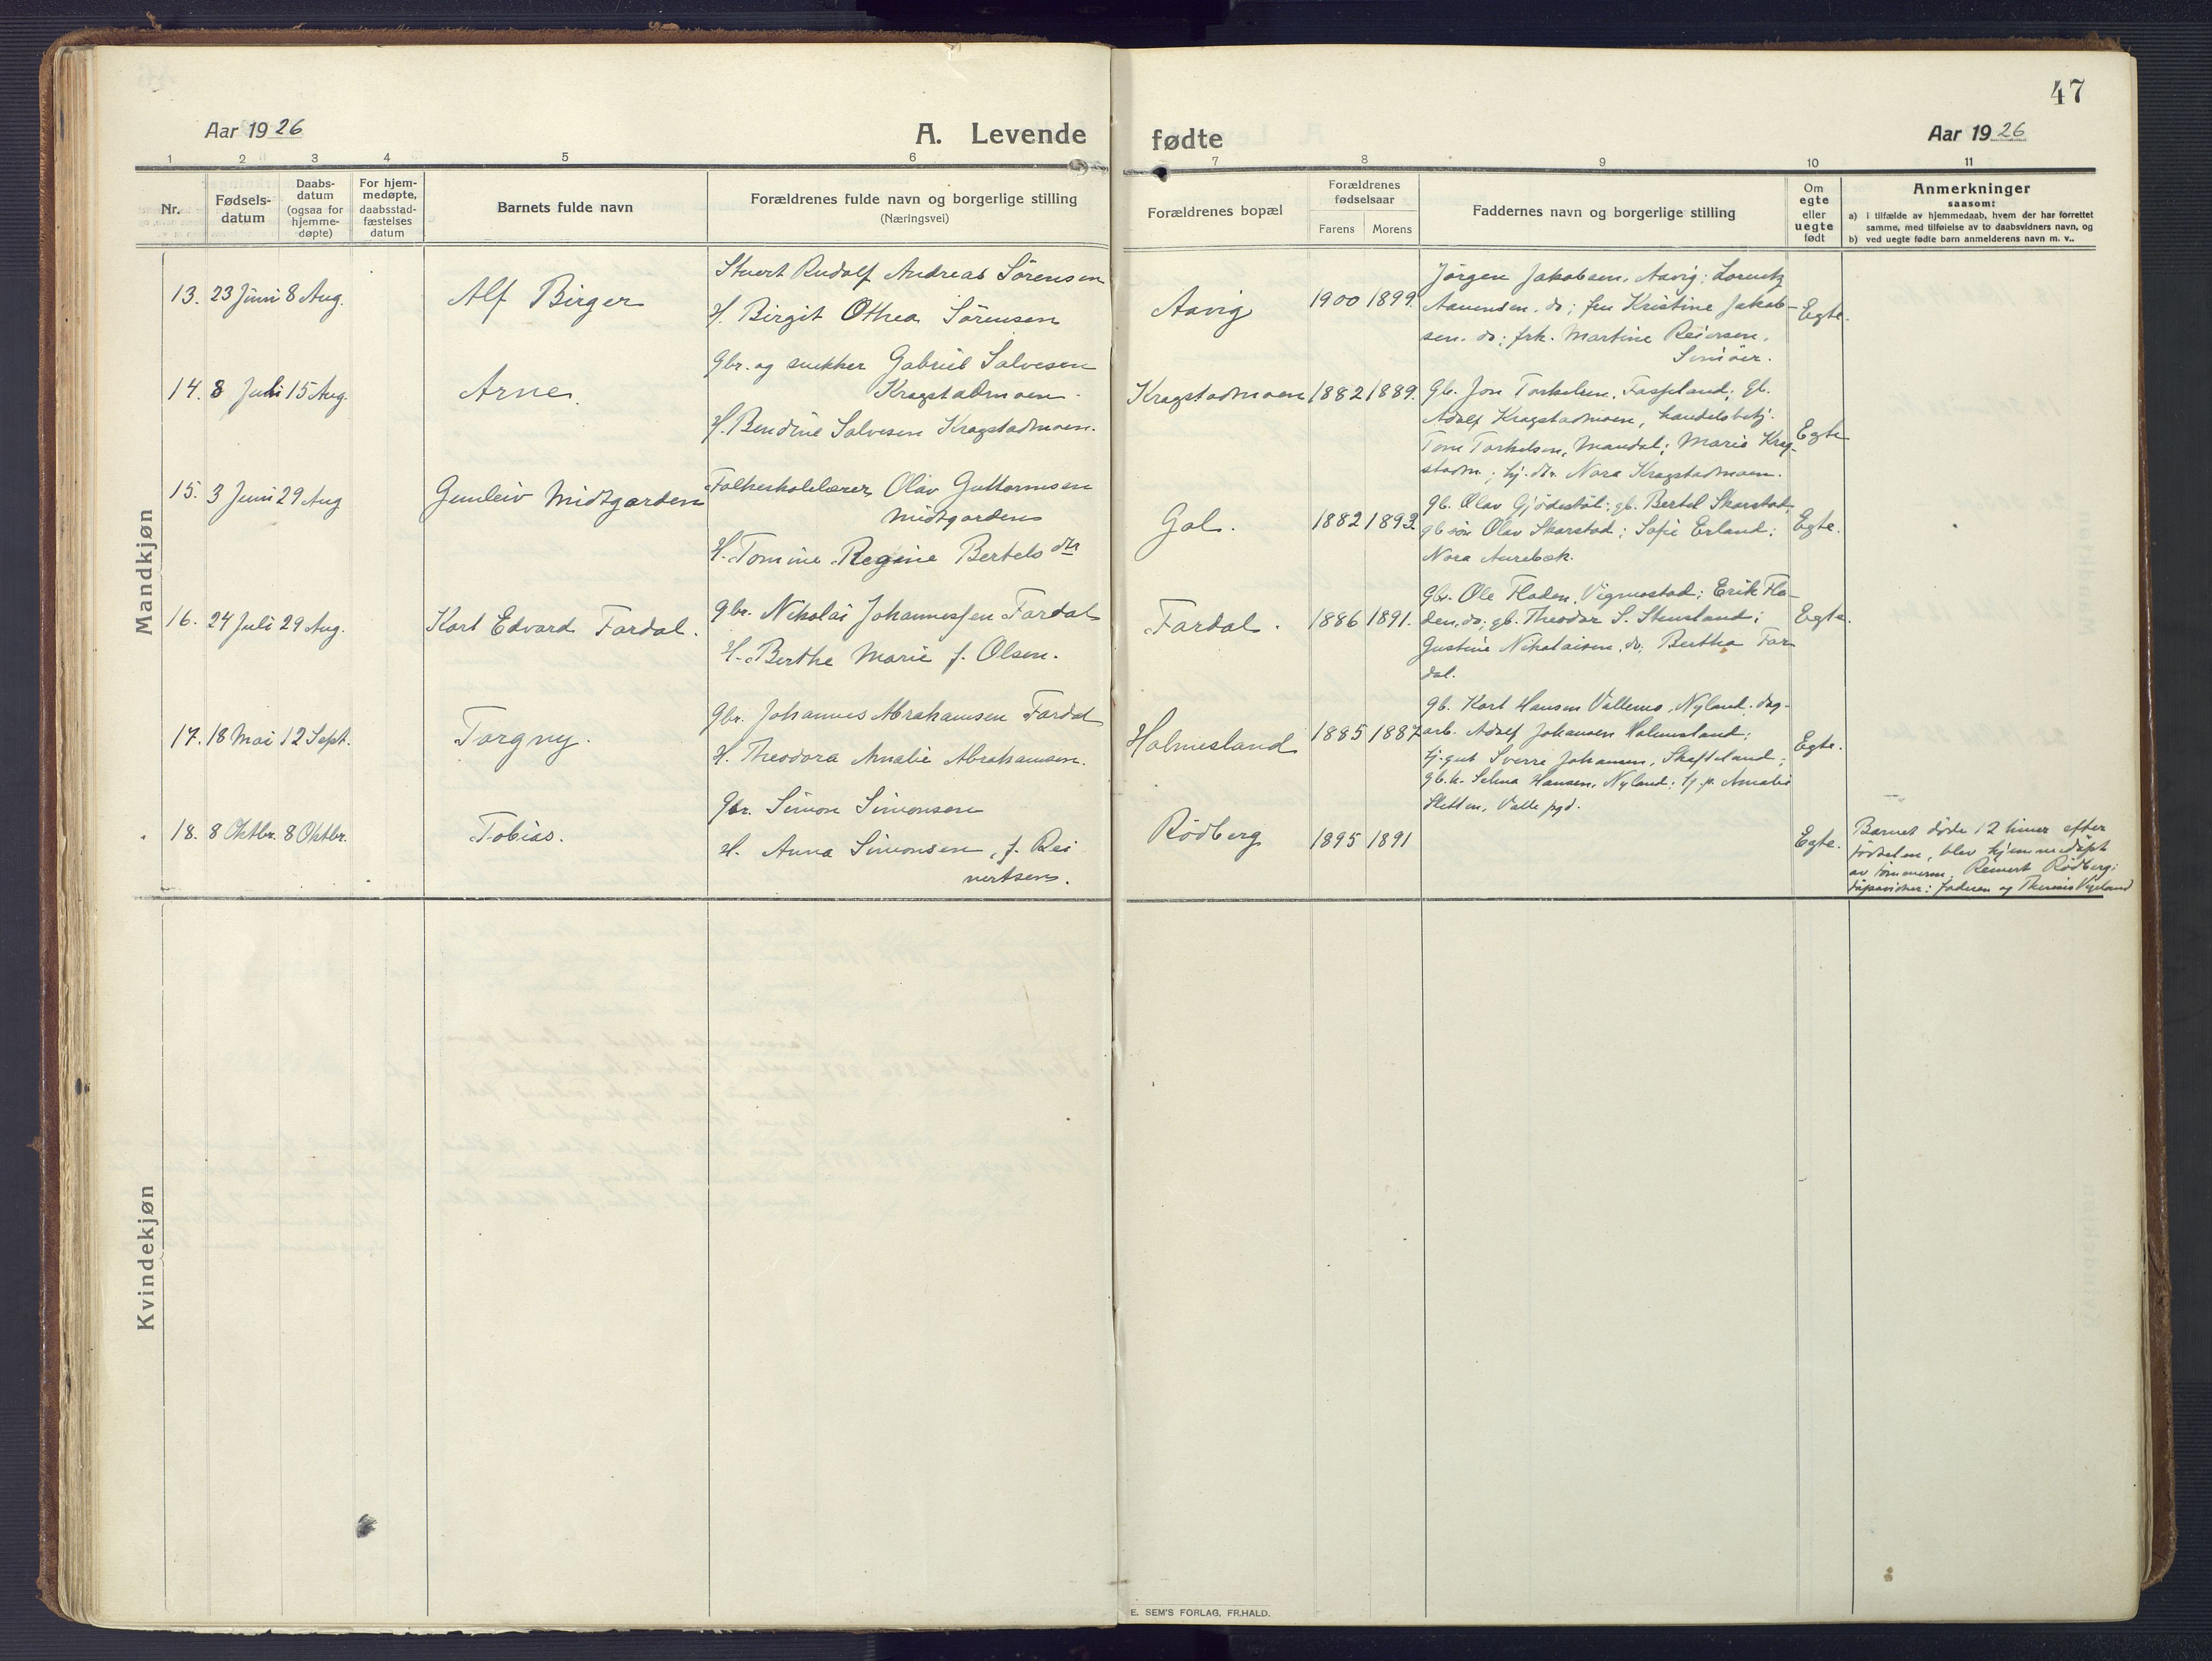 47
Aar 1926
A. Levende fødte
Aar 1926
1 2 3 4 5 6 7 8 9 10 11
Nr.
Fødsels-
datum
Daabs-
datum
(ogsaa for
hjemme-
døpte)
For hjem-
medøpte,
daabsstad-
fæstelses
datum
Barnets fulde navn
Forældrenes fulde navn og borgerlige stilling
(Næringsvei)
Forældrenes bopæl
Forældrenes
fødselsaar
Farens Morens
Faddernes navn og borgerlige stilling
Om
egte
eller
uegte
født
Anmerkninger
saasom:
a) i tilfælde av hjemmedaab, hvem der har forrettet
samme, med tilføielse av to daabsvidners navn, og
b) ved uegte fødte barn anmelderens navn m. v..
Mandkjøn
13. 23 Juni 8 Aug.
Alf Birger
Stuert Rudolf Andreas Sörensen
H. Birgit Othea Sörensen
Aavig
1900 1899.
Jörgen Jakobsen, Aavig; Lorentz
Aanensen, do; fru Kristine Jakob-
sen. do; frk. Martine Reiersen,
Egte.
14. 8 Juli 15 Aug.
Arne.
Gbr. og snekker Gabriel Salvesen
Kragstadmoen.
H. Bendine Salvesen Kragstadmoen.
Kragstadmoen
1882 1889.
Gb. Jon Torkelsen, Fasseland; gb.
Adolf Kragstadmoen, handelsbetj.
Tom Torkelsen, Mandal; Marie Krag-
stadm.; hj. dtr. Nora Kragstadmoen.
Egte
15. 3 Juni 29 Aug
Gunleiv Midtgarden
Folkeskolelærer Olav Guttormsen
Midtgarden
H. Tomine Regine Bertels dtr
Gol.
1882 1893.
gb. Olav Gjödestöl; gb. Bertel Skarstad;
gb sön Olav Skarstad; Sofie Erland;
Nora Aurebæk.
Egte.
16. 24 Juli 29 Aug.
Kart Edvard Fardal.
gbr. Nikolai Johannessen Fardal
H. Berthe Marie f. Olsen.
Fardal.
1886 1891.
Gbr. Ole Floden, Vigmostad; Erik Flo-
den, do; gb. Theodor S. Stensland;
Gustine Nikolaisen, do; Bertha Far
dal.
Egte.
17. 18 Mai 12 Sept.
Torgny.
Gbr. Johannes Abrahamsen Fardal
H. Theodora Amalie Abrahamsen.
Holmesland
1885 1887
gb. Kart Hansen Vallemo, Nyland; dag-
arb. Adolf Johansen Holmesland;
hj. gut Sverre Johansen, Skofteland;
gb. k. Selma Hansen, Nyland; hj. p. Amalie
Sletten, Valle pgd.
Egte.
18. 8 Oktbr. 8 Oktbr.
Tobias.
Gbr. Simon Simonsen
H. Anna Simonsen, f. Rei
nertsen.
Rödberg
1895 1891
Egte.
Barnet döde 12 timer efter
födselen, blev hjemmedöpt
av Reinert Rödberg;
faderen og Vigeland
Kvindekjøn
E. SEM'S FORLAG, FR.HALD.